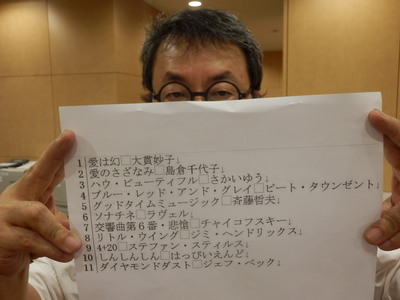 1 愛は幻□大貫妙子↓
2 愛のさざなみ□島倉千代子↓
3 ハウ・ビューティフル□さかいゆう↓
4 ブルー・レッド・アンド・グレイ□ピート・タウンゼント↓
5 グッドタイムミュージック□斉藤哲夫↓
6 ソナチネ□ラヴェル↓
7 交響曲第6番・悲愴□チャイコフスキー↓
8 リトル・ウイング□ジミ・ヘンドリックス↓
9 4+20□ステファン・スティルス↓
10 しんしんしん□はっぴいえんど↓
11 ダイヤモンドダスト□ジェフ・ベック↓